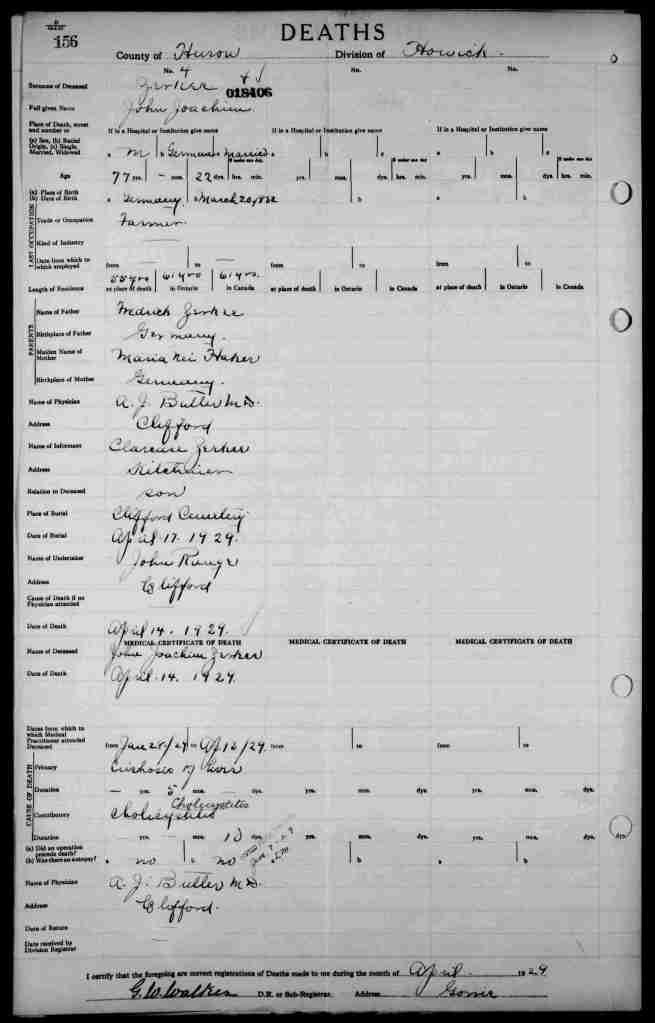 156
DEATHS
County of Huron Division of Howick
No. 4 No. No.
Surname of Deceased Zerker
018406
Full given Name John Joachim
Place of Death, street and number or If in a Hospital or Institution give name If in a Hospital or Institution give name If in a Hospital or Institution give name
(a) Sex, (b) Racial Origin, (c) Single, Married, Widowed a M b German c Married a b c a b c
If under one day If under one day If under one day
Age 77 yrs. - mos. 22 dys. hrs. min. yrs. mos. dys. hrs. min. yrs. mos. dys. hrs. min.
(a) Place of Birth
(b) Date of Birth a Germany b March 20, 1852 a b a b
LAST OCCUPATION
Trade or Occupation Farmer
Kind of Industry
Date from which to which employed from — to — from to from to
Length of Residence 55 yrs 61 yrs 61 yrs.
at place of death in Ontario in Canada at place of death in Ontario in Canada at place of death in Ontario in Canada
PARENTS
Name of Father Zerker
Birthplace of Father Germany.
Maiden Name of Mother Maria
Birthplace of Mother Germany.
Name of Physician A. J. Butler M.D.
Address Clifford
Name of Informant Clarence Zerker
Address Kitchener
Relation to Deceased son
Place of Burial Clifford Cemetery
Date of Burial April 17. 1929.
Name of Undertaker John
Address Clifford
Cause of Death if no Physician attended
Date of Death April 14. 1929.
MEDICAL CERTIFICATE OF DEATH MEDICAL CERTIFICATE OF DEATH MEDICAL CERTIFICATE OF DEATH
Name of Deceased John Joachim Zerker
Date of Death April 14. 1929.
Dates from which to which Medical Practitioner attended Deceased from Jan 28/29 to Ap 12/29 from to from to
CAUSE OF DEATH
Primary Cirrhosis of Liver
Duration — yrs. 5 mos. — dys. yrs. mos. dys. yrs. mos. dys.
Cholecystitis
Contributory Cholecystitis
Duration — yrs. — mos. 10 dys. yrs. mos. dys. yrs. mos. dys.
(a) Did an operation precede death?
(b) Was there an autopsy? a no b no a b a b
Name of Physician A. J. Butler M.D.
Address Clifford.
Date of Return
Date received by Division Registrar —
I certify that the foregoing are correct registrations of Deaths made to me during the month of April 1929
G. W. Walker D.R. or Sub-Registrar. Address Gorrie